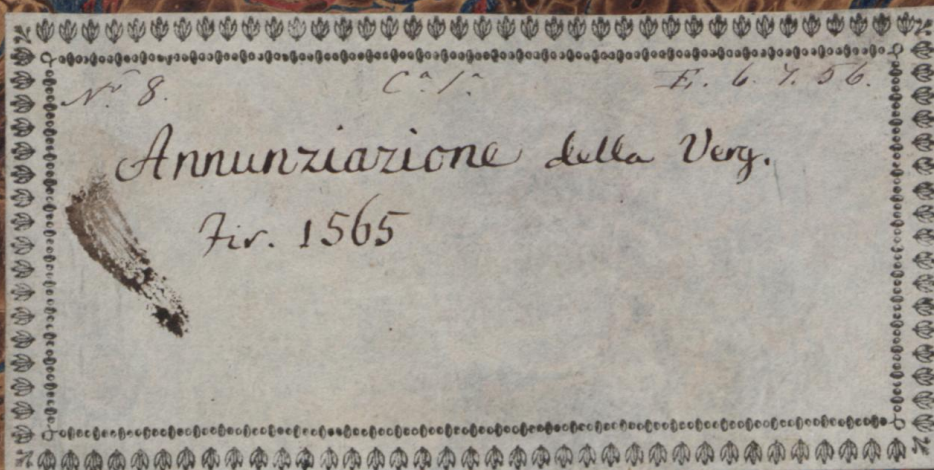 Nº 8. Cª 1ª E. 6. 7. 56.
Annunziazione della Verg.
Fir. 1565